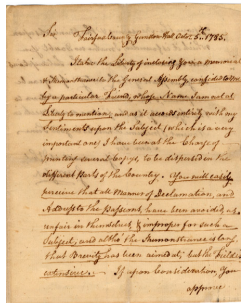 Sir
Fairfax County Gunston Hall Octor. 5th. 1785.
I take the Liberty of inclosing You a memorial
& Remonstrance to the General Assembly, confided to me
by a particular Friend, whose Name I am not at
Liberty to mention; and as it accords entirely with my
Sentiments upon the Subject (which is a very
important one) I have been at the Charge of
printing several Copys, to be dispersed in the
different Parts of the Country. You will easily
perceive that all Manner of Declamation, and
Address to the Passions, have been avoided, as
unfair in themselves, & improper for such a
Subject, and altho the Remonstrance is long,
that Brevity has been aimed at; but the Field is
extensive. If upon Consideration, You
approve